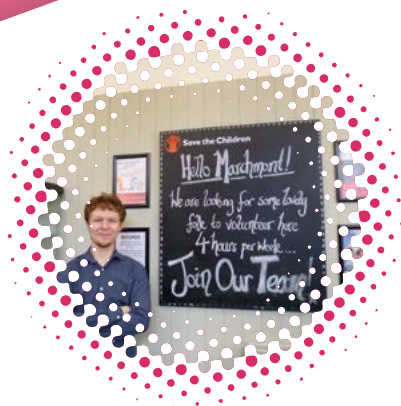 Save the Children
Hello Marchmont!
We are looking for some lovely
folk to volunteer here
4 hours per week...
Join Our Team!